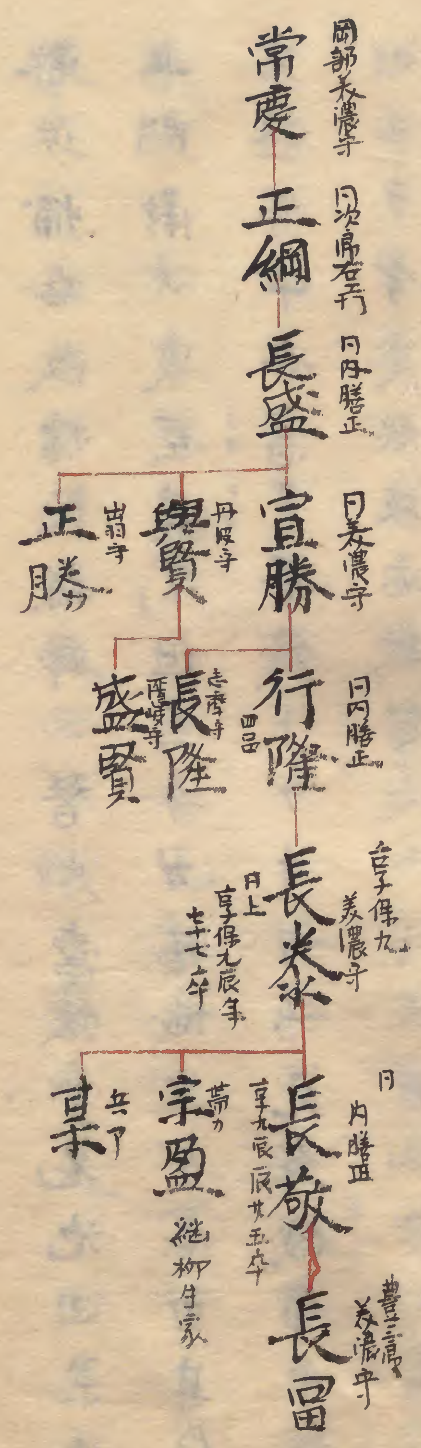 岡部美濃守
常慶
同次郎右エ門
正綱
同内膳正
長盛
同美濃守
宣勝
丹波守
與賢
出羽守
正勝
同内膳正
行隆
四品
志摩守
長隆
隠岐守
盛賢
享保九
美濃守
長泰
同上
享保九辰年
七十七卒
同
内膳正
長敬
享九辰
廿五卒
帯刀
宗盈
継柳生家
兵部
某
美濃守
長冨